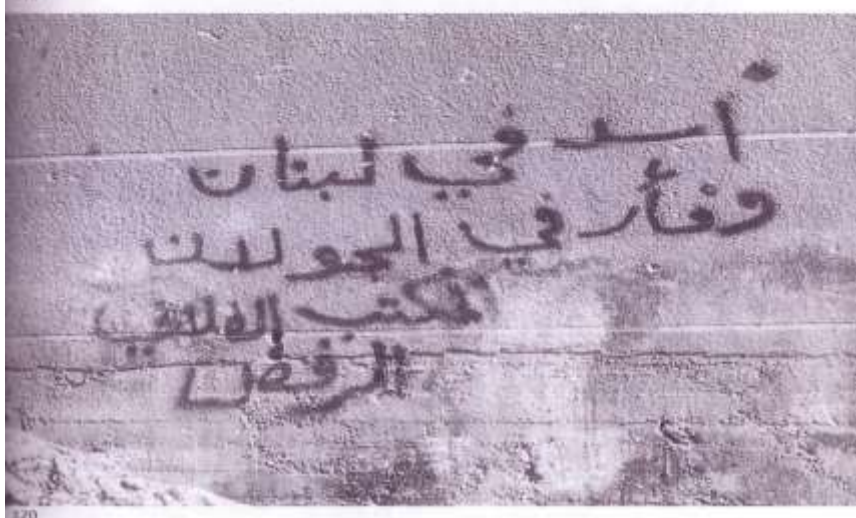 أسد في لبنان
وفأر في الجولان
المكتب
الرفض
120